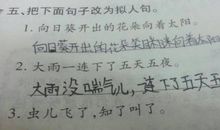 五、把下面句子改为拟人句。
1. 向日葵开出的花朵向着太阳。
向日葵开出的花朵笑着向着太阳
2. 大雨一连下了五天五夜。
大雨没喘气儿,连下了五天五
3. 虫儿飞了,知了叫了。